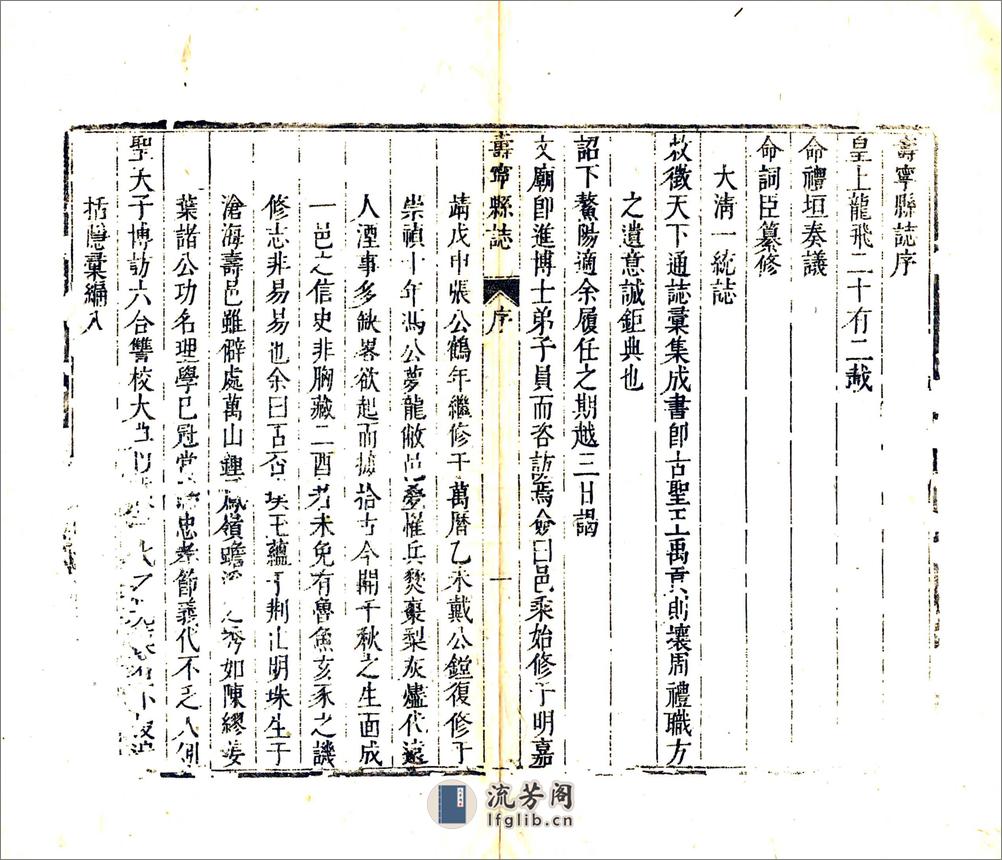 壽寧縣誌序
皇上龍飛二十有二載
命禮垣奏議
命詞臣纂修
大清一統誌
敕徵天下通誌彙集成書即古聖王禹貢則壤周禮職方
之遺意誠鉅典也
詔下鰲陽適余履任之期越三日謁
文廟即進博士弟子員而咨訪焉僉曰邑乘始修于明嘉
壽寧縣誌 序 一
靖戊申張公鶴年繼修于萬曆乙未戴公鏜復修于
崇禎十年馮公夢龍敝邑憂罹兵燹棗梨灰燼代遠
人湮事多缺畧欲起而摭拾古今開千秋之生面成
一邑之信史非胸藏二酉者未免有魯魚亥豕之譏
修志非易易也余曰否否璞玉蘊于荆山明珠生于
滄海壽邑雖僻處萬山鍾嶺之秀如陳繆姜
葉諸公功名理學已冠當忠孝節義代不乏人例
聖天子博訪六合讐校大
括隱彙編入
流芳阁
lfglib.cn